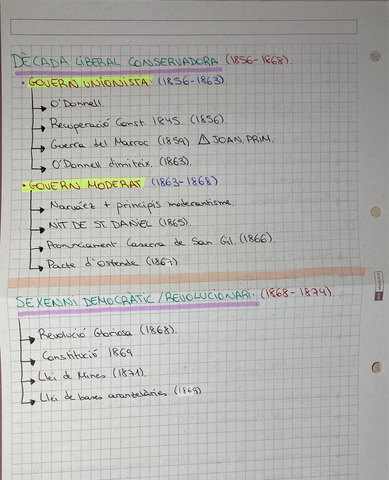 DÈCADA LIBERAL CONSERVADORA (1856-1868)
• GOVERN UNIONISTA: (1856-1863)
O'Donnell
Recuperació Const. 1845. (1856).
Guerra del Marroc (1859) ⚠ JOAN PRIM.
O'Donnell dimiteix. (1863).
• GOVERN MODERAT (1863-1868)
Narváez + principis moderantisme.
NIT DE ST. DANIEL (1865).
Pronunciament Caserna de San Gil. (1866).
Pacte d'Ostende (1867)
SEXENNI DEMOCRÀTIC/REVOLUCIONARI: (1868-1874).
Revolució Gloriosa (1868).
Constitució 1869
Llei de Mines (1871)
Llei de bases aranzelàries (1869)